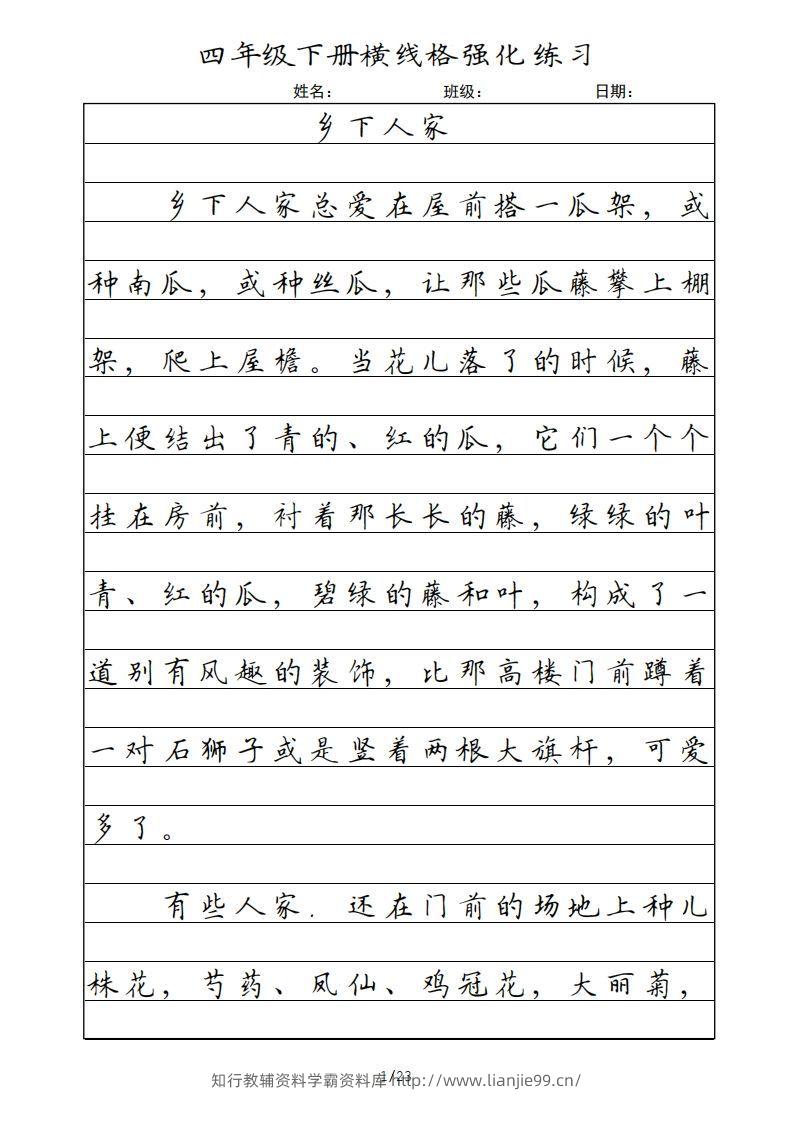 四年级下册横线格强化练习
姓名： 班级： 日期：
乡下人家
乡下人家总爱在屋前搭一瓜架，或
种南瓜，或种丝瓜，让那些瓜藤攀上棚
架，爬上屋檐。当花儿落了的时候，藤
上便结出了青的、红的瓜，它们一个个
挂在房前，衬着那长长的藤，绿绿的叶
青、红的瓜，碧绿的藤和叶，构成了一
道别有风趣的装饰，比那高楼门前蹲着
一对石狮子或是竖着两根大旗杆，可爱
多了。
有些人家．还在门前的场地上种儿
株花，芍药、凤仙、鸡冠花，大丽菊，
1/23
知行教辅资料学霸资料库 http://www.lianjie99.cn/